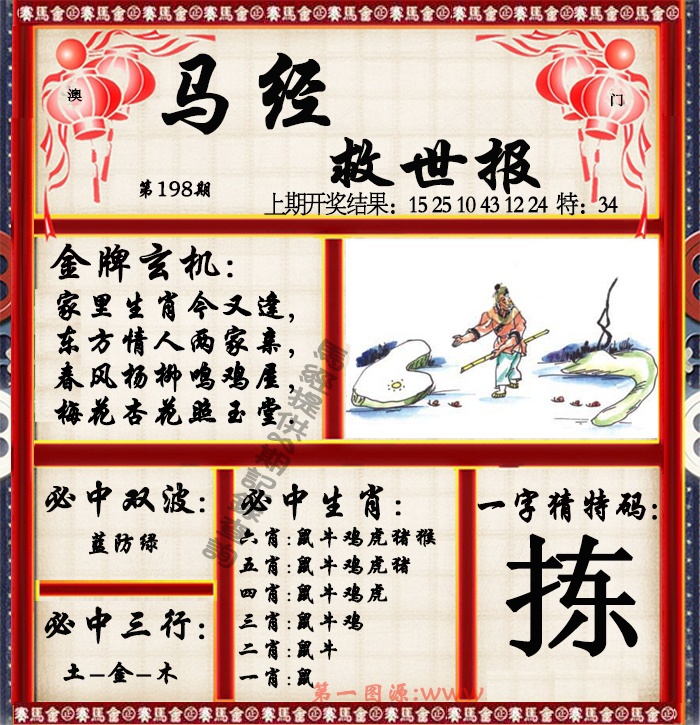 賽馬會㊣賽馬會㊣賽馬會㊣賽馬會㊣賽馬會㊣賽馬會㊣賽馬會
澳
门
马经
救世报
第198期
上期开奖结果：15 25 10 43 12 24 特：34
金牌玄机：
家里生肖今又逢，
东方情人两家亲，
春风杨柳鸣鸡屋，
梅花杏花照玉堂.
必中双波：
蓝防绿
必中三行：
土-金-木
必中生肖：
六肖:鼠牛鸡虎猪猴
五肖:鼠牛鸡虎猪
四肖:鼠牛鸡虎
三肖:鼠牛鸡
二肖:鼠牛
一肖:鼠
一字猜特码:
拣
第一图源:www